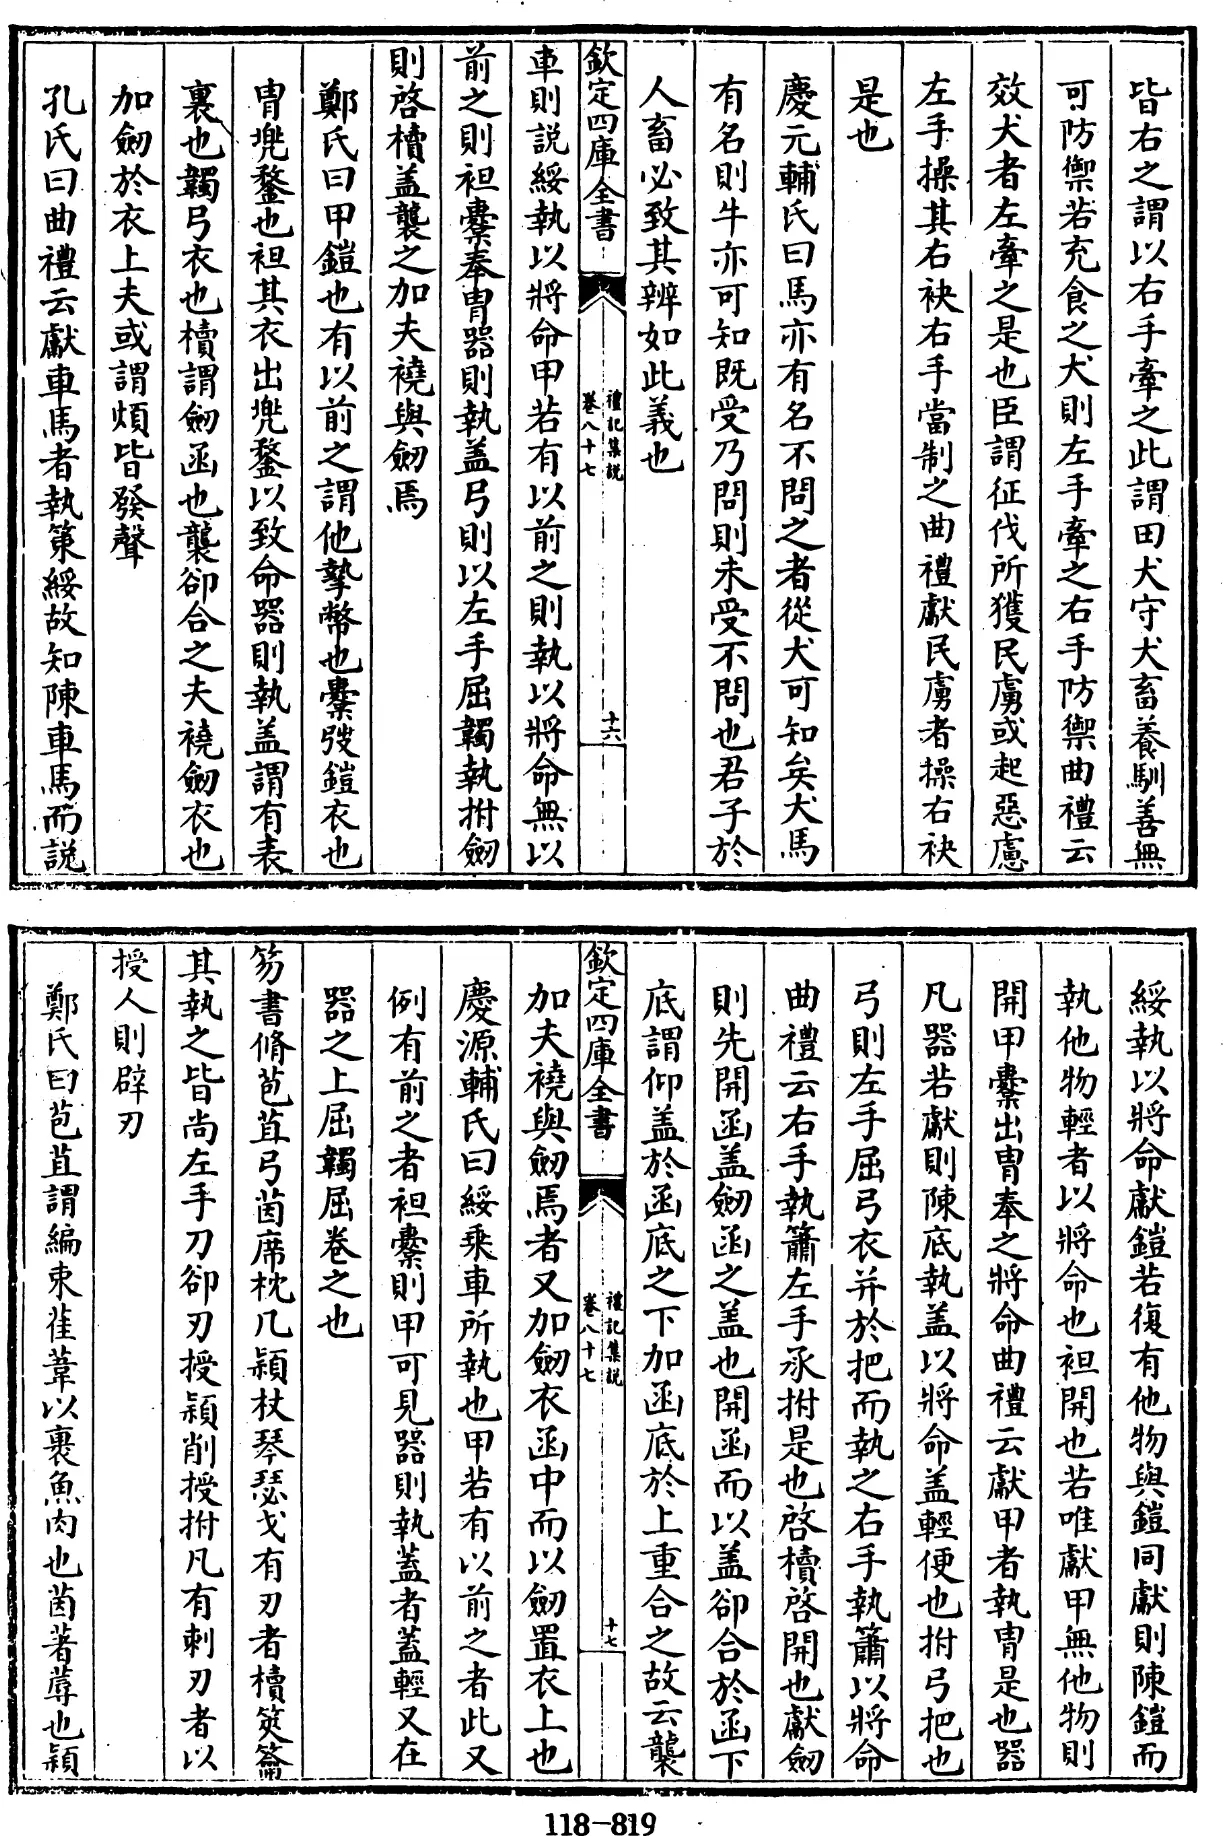 皆右之謂以右手牽之此謂田犬守犬畜養馴善無
可防禦若充食之犬則左手牽之右手防禦曲禮云
效犬者左牽之是也臣謂征伐所獲民虜或起惡慮
左手操其右袂右手當制之曲禮獻民虜者操右袂
是也
慶元輔氏曰馬亦有名不問之者從犬可知矣犬馬
有名則牛亦可知既受乃問則未受不問也君子於
人畜必致其辨如此義也
欽定四庫全書
禮記集說
卷八十七
十六
車則說綏執以將命甲若有以前之則執以將命無以
前之則袒櫜奉胄器則執盖弓則以左手屈韣執拊劒
則啓櫝盖襲之加夫襓與劒焉
鄭氏曰甲鎧也有以前之謂他摯幣也櫜弢鎧衣也
胄兠鍪也袒其衣出兠鍪以致命器則執盖謂有表
裏也韣弓衣也櫝謂劒函也襲卻合之夫襓劒衣也
加劒於衣上夫或謂煩皆發聲
孔氏曰曲禮云獻車馬者執策綏故知陳車馬而說
綏執以將命獻鎧若復有他物與鎧同獻則陳鎧而
執他物輕者以將命也袒開也若唯獻甲無他物則
開甲櫜出胄奉之將命曲禮云獻甲者執胄是也器
凡器若獻則陳底執盖以將命盖輕便也拊弓把也
弓則左手屈弓衣并於把而執之右手執簫以將命
曲禮云右手執簫左手承拊是也啓櫝啓開也獻劒
則先開函盖劒函之盖也開函而以盖卻合於函下
底謂仰盖於函底之下加函底於上重合之故云襲
欽定四庫全書
禮記集說
卷八十七
十七
加夫襓與劒焉者又加劒衣函中而以劒置衣上也
慶源輔氏曰綏乘車所執也甲若有以前之者此又
例有前之者袒櫜則甲可見器則執蓋者蓋輕又在
器之上屈韣屈卷之也
笏書脩苞苴弓茵席枕几熲杖琴瑟戈有刃者櫝筴籥
其執之皆尚左手刀卻刃授穎削授拊凡有刺刃者以
授人則辟刃
鄭氏曰苞苴謂編束萑葦以裹魚肉也茵著蓐也熲
118-819